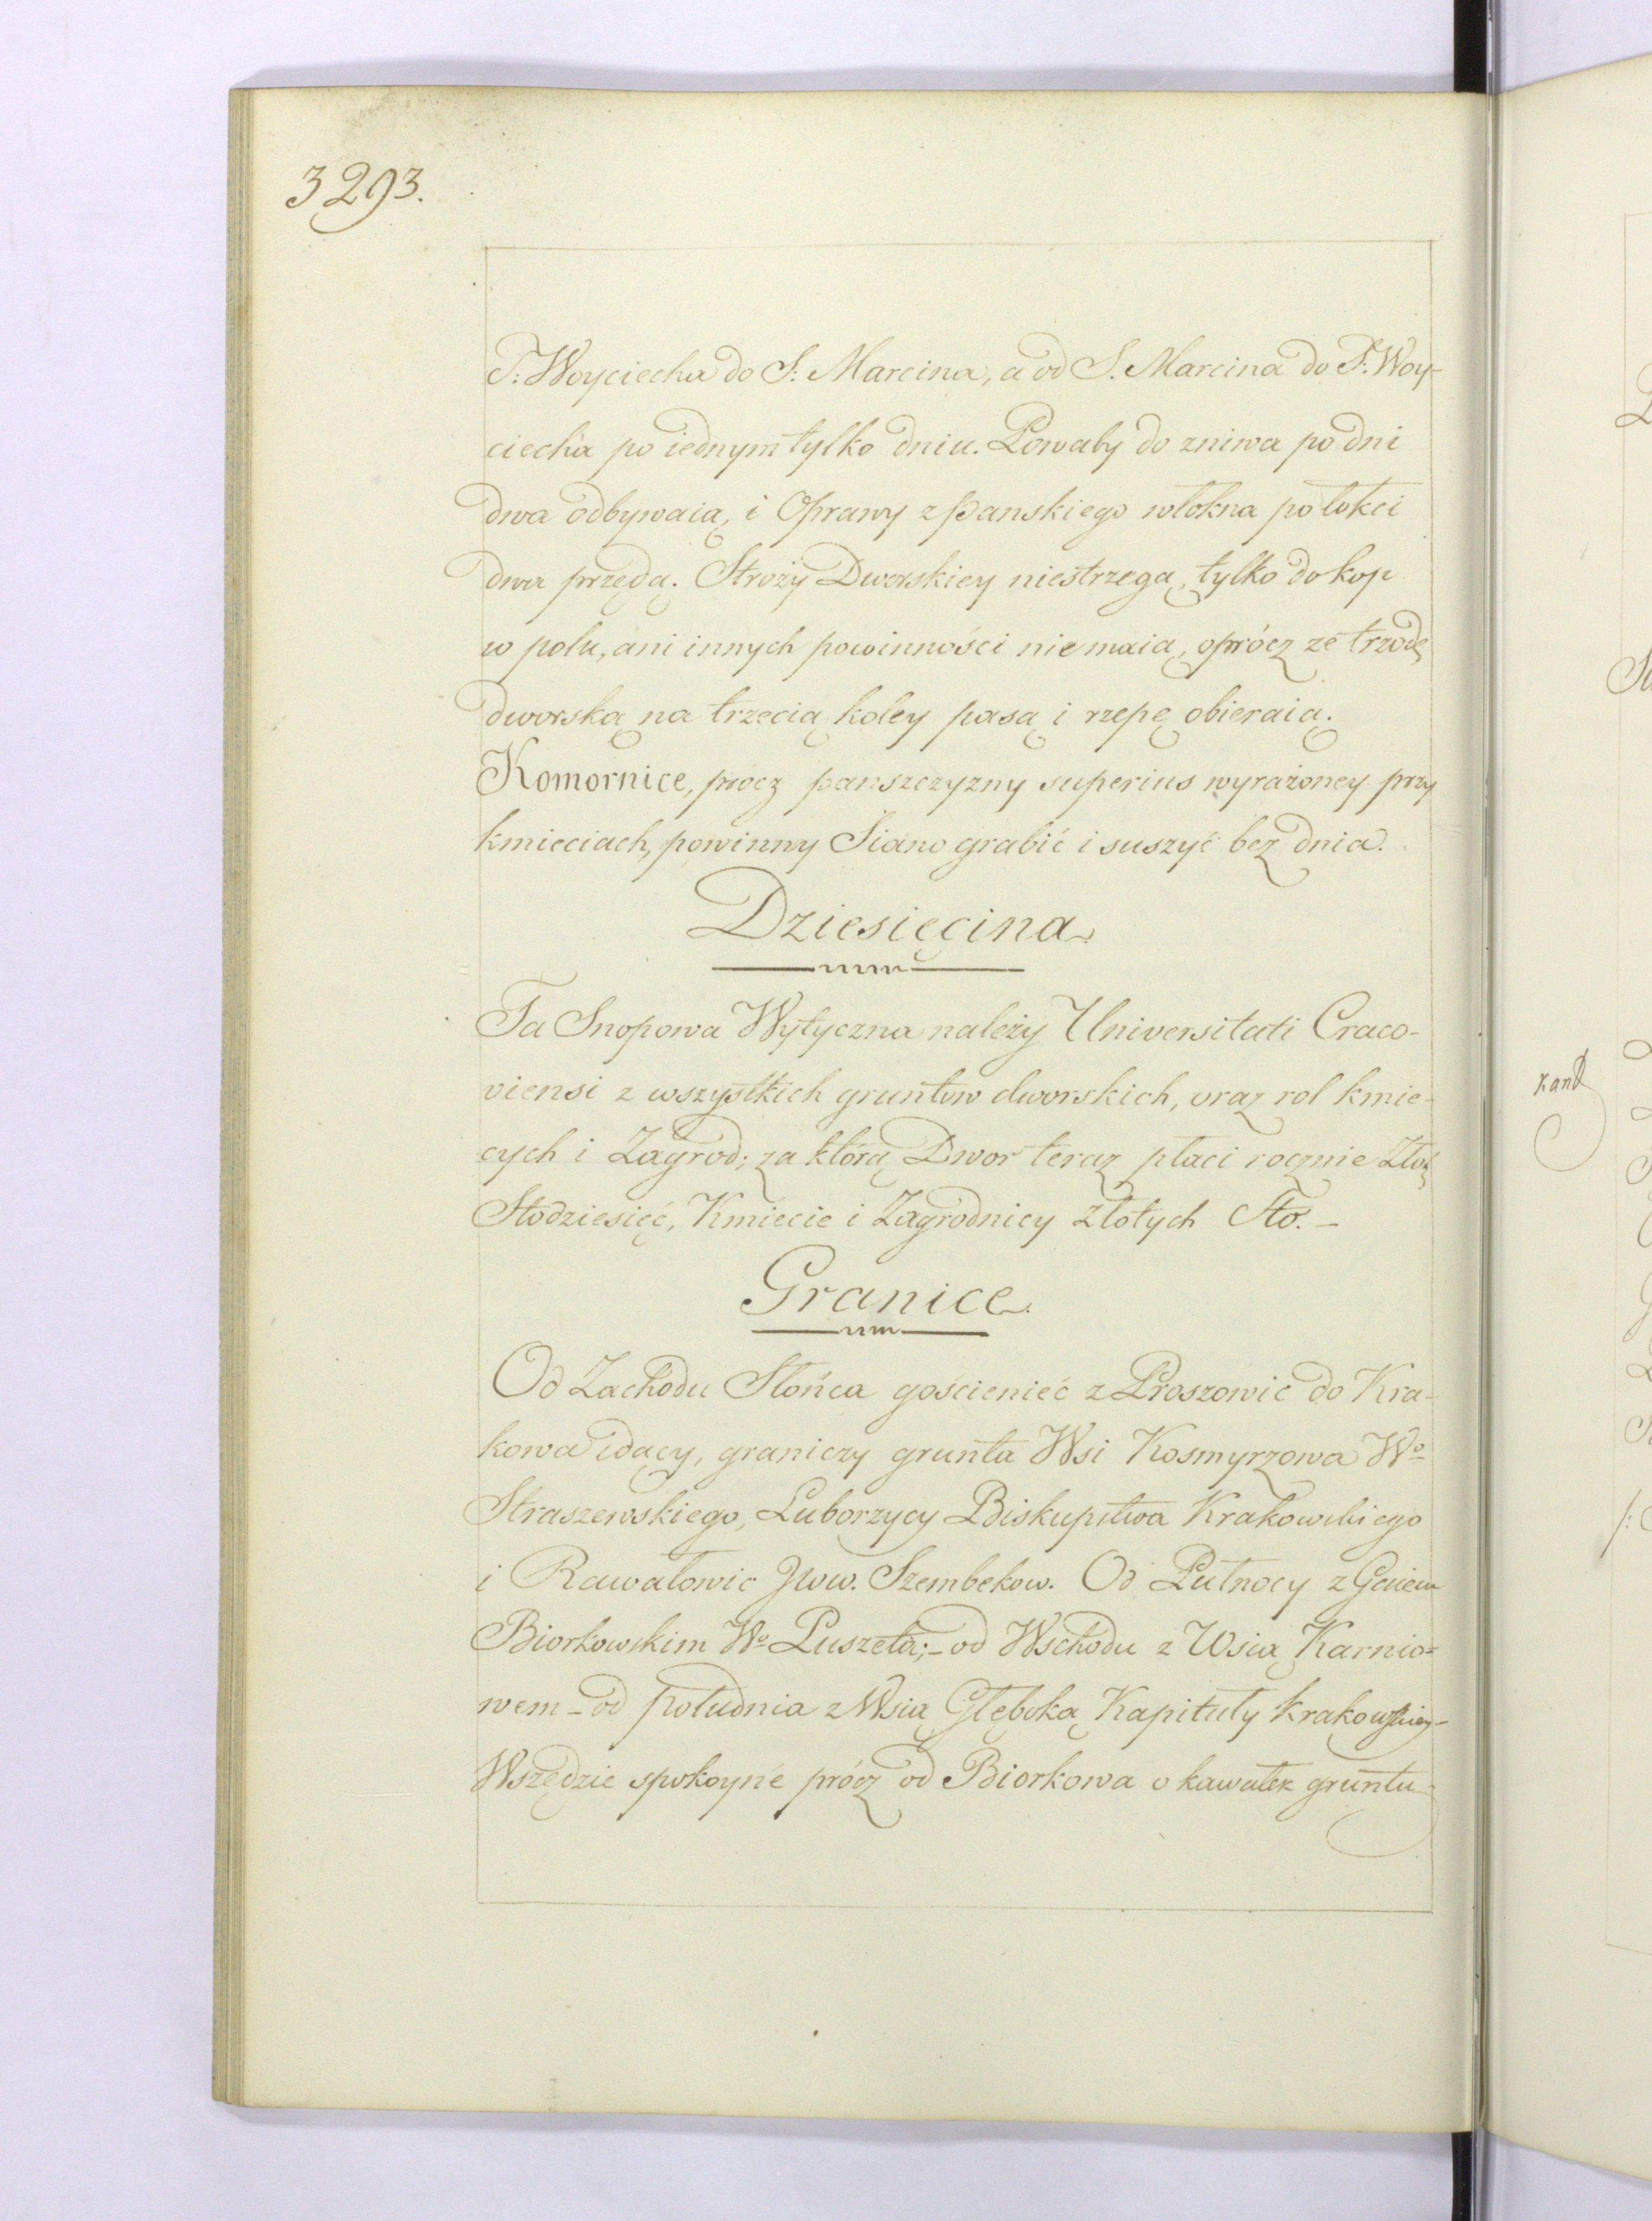 3293.
S: Woyciecha do S: Marcina, a od S. Marcina do S: Woy-
ciecha po iednym tylko dniu. Powaby do zniwa po dni
dwa odbywaią, i Oprawy z Panskiego włokna po łokci
dwa przędą. Stroży Dworskiey niestrzegą, tylko do kop
w polu, ani innych powinności nie maią, oprócz ze trzodę
dworską na trzecią koley pasą i rzepę obieraią.
Komornice, prócz panszczyzny superius wyrażoney przy
kmieciach, powinny Siano grabić i suszyć bez dnia.
Dziesięcina
Ta Snopowa Wytyczna należy Universitati Craco-
viensi z wszystkich gruntów dworskich, oraz rol kmie-
cych i Zagrod; za którą Dwor teraz płaci rocznie Złot
Stodziesięć, Kmiecie i Zagrodnicy Złotych Sto. -
Granice.
Od Zachodu Słońca gościenieć z Proszowic do Kra-
kowa idący, graniczy grunta Wsi Kosmyrzowa Wo
Straszewskiego, Luborzycy Biskupstwa Krakowskiego
i Rawałowic Jww. Szembekow. Od Pułnocy z
Biorkowskim Wo Puszeta; - od Wschodu z Wsią Karnio=
wem - od południa z Wsią Głęboką Kapituły krakowskiey -
Wszędzie spokoyne prócz od Biorkowa o kawałek gruntu
kand